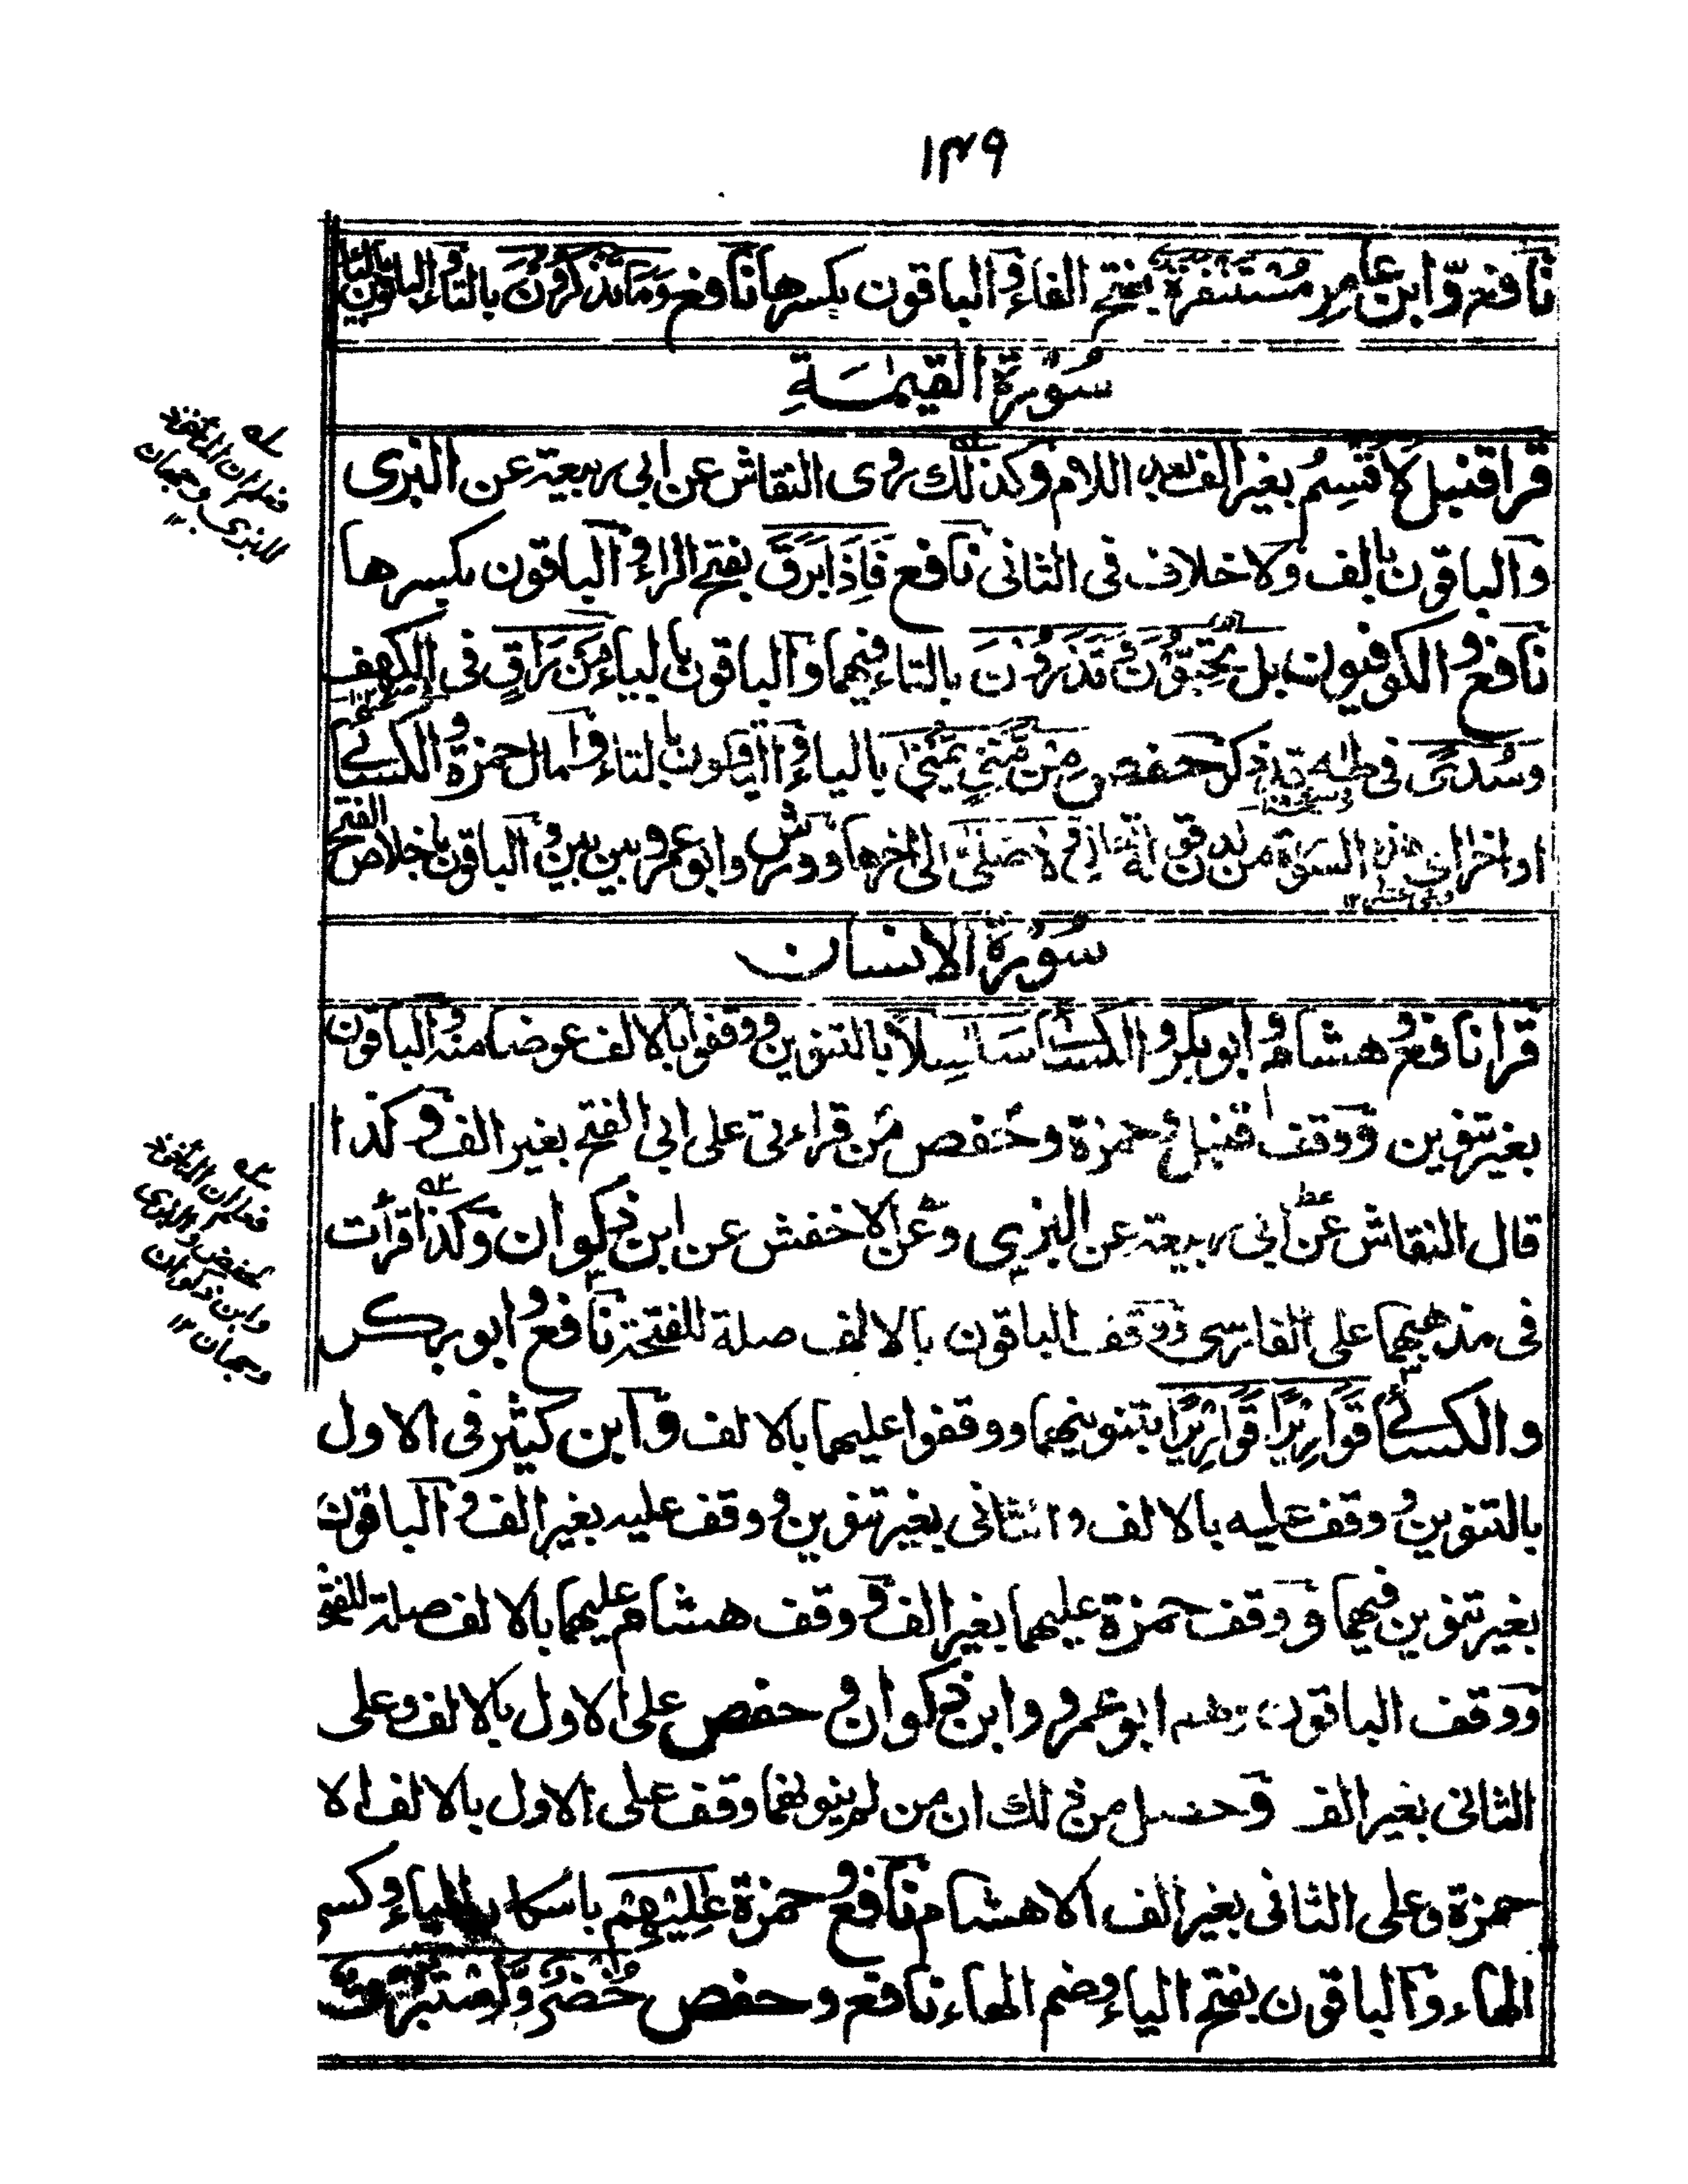 ١٣٩
نافع وابن عامر مُسْتَنْفَرَة بفتح الفاء والباقون بكسرها نافع وَمَا تَذْكُرُونَ بالتاء والباقون بالياء
سُوْرَةُ الْقِيٰمَةِ
قرا قنبل لَاُقْسِمُ بغير الف بعد اللام وكذلك روى النقاش عن ابى ربيعة عن البزى
والباقون بالف ولا خلاف فى الثانى نافع فَاِذَا بَرَقَ بفتح الراء والباقون بكسرها
نافع والكوفيون بل تُحِبُّوْنَ وَتَذَرُوْنَ بالتاء فيهما والباقون بالياء مَنْ رَاقٍ فى الكهف
وَسُدًى فى طه قد ذكر حفص مِنْ مَّنِيٍّ يُّمْنٰى بالياء والباقون بالتاء وامال حمزة والكسائى
اواخر اى هذه السورة من لدن قوله تعالى وَلَا صَلّٰى الى اخرها وورش وابو عمرو بين بين والباقون باخلاص الفتح
سُوْرَةُ الْاِنْسَان
قرا نافع وهشام وابو بكر والكسائى سَلَاسِلًا بالتنوين ووقفوا بالالف عوضا منه والباقون
بغير تنوين ووقف قنبل وحمزة وحفص من قراءتى على ابى الفتح بغير الف وكذا
قال النقاش عن ابى ربيعة عن البزى وعن الاخفش عن ابن ذكوان وكذا قرأت
فى مذهبهما على الفارسى ووقف الباقون بالالف صلة للفتحة نافع وابو بكر
والكسائى قَوَارِيْرًا قَوَارِيْرًا بتنوينهما ووقفوا عليهما بالالف وابن كثير فى الاول
بالتنوين ووقف عليه بالالف والثانى بغير تنوين ووقف عليه بغير الف والباقون
بغير تنوين فيهما ووقف حمزة عليهما بغير الف ووقف هشام عليهما بالالف صلة للفتحة
ووقف الباقون وهم ابو عمرو وابن ذكوان وحفص على الاول بالالف وعلى
الثانى بغير الف وحصل من ذلك ان من لم ينونهما وقف على الاول بالالف الا
حمزة وعلى الثانى بغير الف الا هشام نافع وحمزة عٰلِيْهِمْ باسكان الياء وكسر
الهاء والباقون بفتح الياء وضم الهاء نافع وحفص خُضْرٌ وَّاِسْتَبْرَقٌ
له
فعلم ان الماخوذ
للبزى وجهان
١٢
فعلم ان الماخوذ
لحفص والبزى
وابن ذكوان
وجهان ١٢